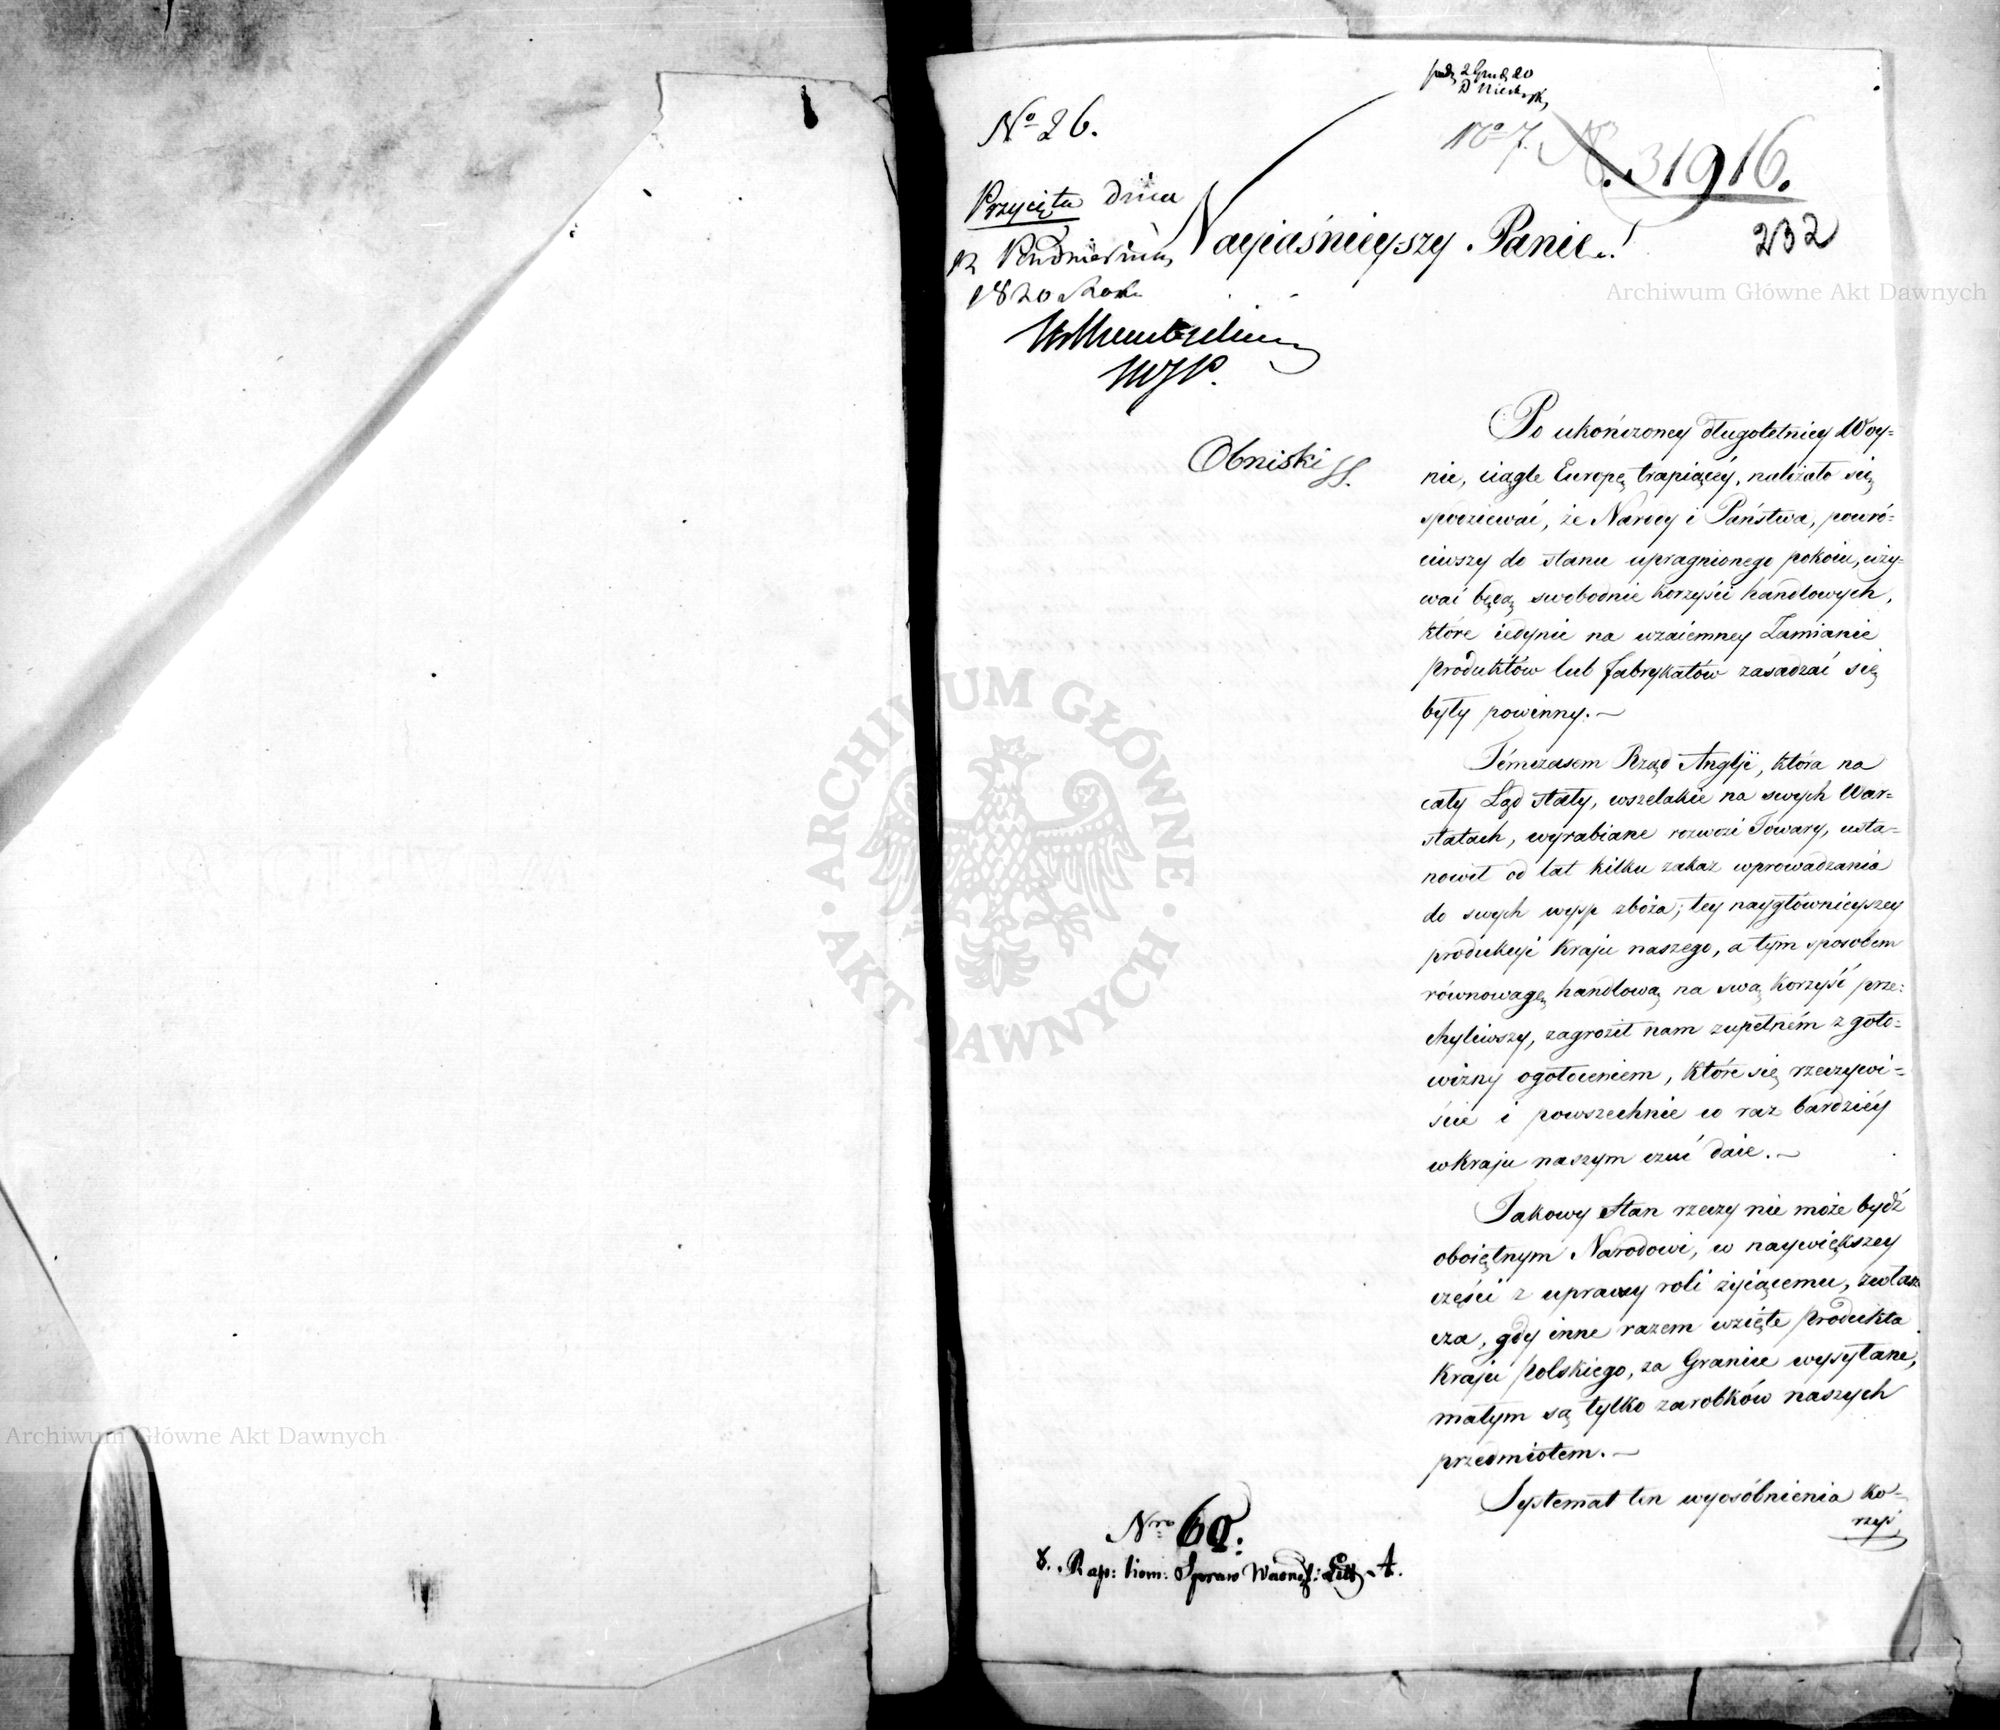 No 26.
Przyięta dnia
12 Października
1820 Roku
Obniski SS.
No 7.
No. 31916.
232
Nayiaśnieyszy Panie!
Po ukończoney długoletniey Woy-
nie, ciągle Europę trapiącéy, należało się
spodziewać, że Narody i Państwa, powró-
ciwszy do stanu upragnionego pokoiu, uży-
wać będą swobodnie korzyści handlowych,
które iedynie na wzaiemney Zamianie
produktów lub fabrykatów zasadzać się
były powinny.—
Témczasem Rząd Anglji, która na
cały Ląd stały, wszelakie na swych War-
statach, wyrabiane rozwozi Towary, usta-
nowił od lat kilku zakaz wprowadzania
do swych wysp zboża; tey naygłównieyszey
produkcyi kraju naszego, a tym sposobem
równowagę handlową na swą korzyść prze-
chyliwszy, zagroził nam zupełném z goto-
wizny ogołoceniem, które się rzeczywi-
ście i powszechnie co raz bardziéy
w kraju naszym czuć daie.—
Takowy Stan rzeczy nie może bydź
oboiętnym Narodowi, w naywiększey
części z uprawy roli żyiącemu, zwłasz
cza, gdy inne razem wzięte produkta
kraju polskiego, za Granice wysyłane,
małym są tylko zarobków naszych
przedmiotem.—
Systemat ten wyosóbnienia ko-
rzyś
Nro 60.
8. Rap: kom: Spraw Wewnę: Litt. A.
Archiwum Główne Akt Dawnych
ARCHIWUM GŁÓWNE · AKT DAWNYCH ·
Archiwum Główne Akt Dawnych